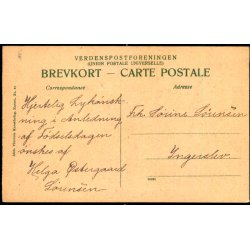 VERDENSPOSTFORENINGEN
(UNION POSTALE UNIVERSELLE)
BREVKORT — CARTE POSTALE
Correspondance
Adresse
Hjertelig Lykønsk-
ning i Anledning
af Födselsdagen
ønskes af
Helga Østergaard
Sörensen
Frk Sörine Sörensen
Ingerslev.